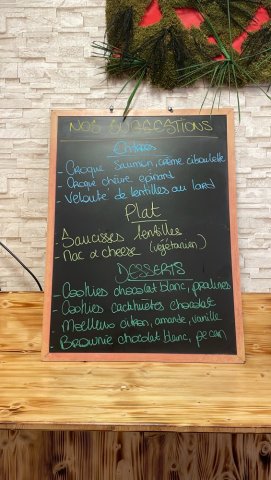 NOS SUGGESTIONS
Entrées
- Croque Saumon, crème ciboulette
- Croque chèvre épinard
- Velouté de lentilles au lard
Plat
- Saucisses lentilles
- Mac & cheese (végétarien)
DESSERTS
- Cookies chocolat blanc, pralines
- Cookies cacahuètes chocolat
- Moelleux citron, amande, vanille
- Brownie chocolat blanc, pecan